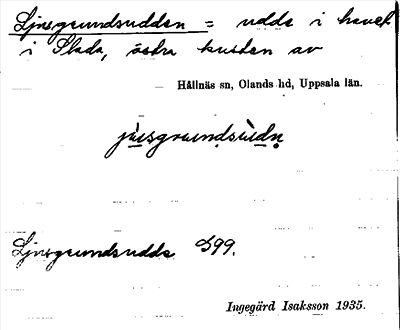 Ljusgrundsudden = udde i havet
i Slada, östra kusten av
Hållnäs sn, Olands hd, Uppsala län.
jùsgrundsùdn̥
Ljusgrundsudde 599.
Ingegärd Isaksson 1935.